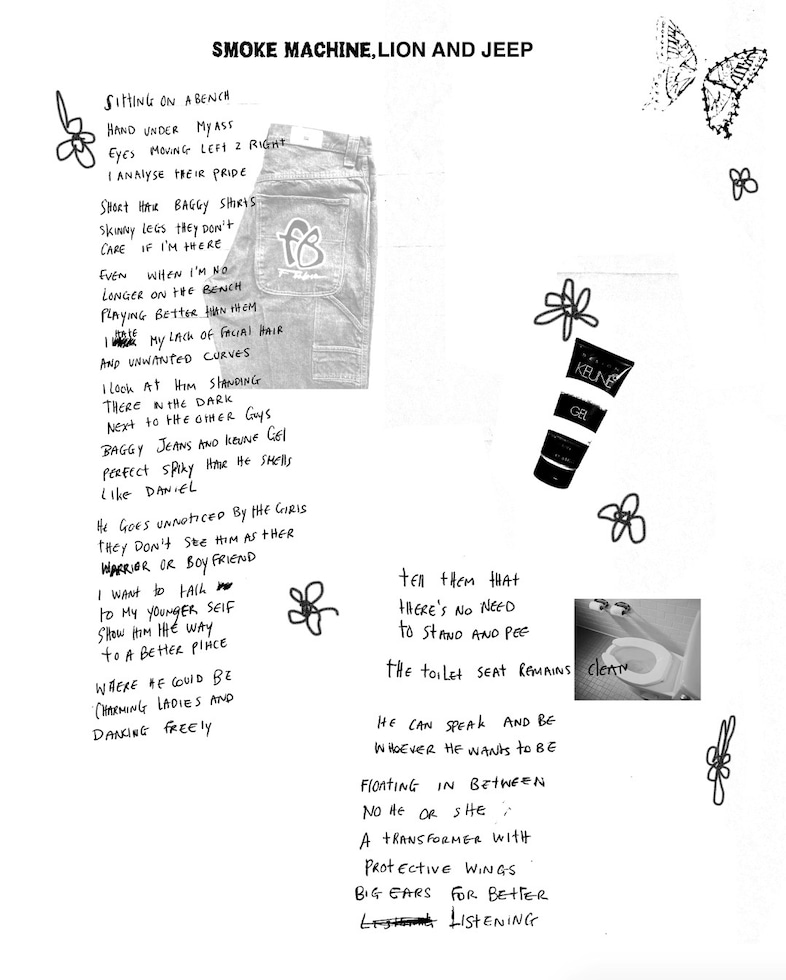 SMOKE MACHINE, LION AND JEEP
SITTING ON A BENCH
HAND UNDER MY ASS
EYES MOVING LEFT 2 RIGHT
I ANALYSE THEIR PRIDE
SHORT HAIR BAGGY SHIRTS
SKINNY LEGS THEY DON'T
CARE IF I'M THERE
EVEN WHEN I'M NO
LONGER ON THE BENCH
PLAYING BETTER THAN THEM
I HATE MY LACK OF FACIAL HAIR
AND UNWANTED CURVES
I LOOK AT HIM STANDING
THERE IN THE DARK
NEXT TO THE OTHER GUYS
BAGGY JEANS AND KEUNE GEL
PERFECT SPIKY HAIR HE SMELLS
LIKE DANIEL
HE GOES UNNOTICED BY THE GIRLS
THEY DON'T SEE HIM AS THER
WARRIOR OR BOYFRIEND
I WANT TO TALK
TO MY YOUNGER SELF
SHOW HIM THE WAY
TO A BETTER PLACE
WHERE HE COULD BE
CHARMING LADIES AND
DANCING FREELY
FB
KEUNE
GEL
TELL THEM THAT
THERE'S NO NEED
TO STAND AND PEE
THE TOILET SEAT REMAINS CLEAN
HE CAN SPEAK AND BE
WHOEVER HE WANTS TO BE
FLOATING IN BETWEEN
NO HE OR SHE
A TRANSFORMER WITH
PROTECTIVE WINGS
BIG EARS FOR BETTER
LISTENING